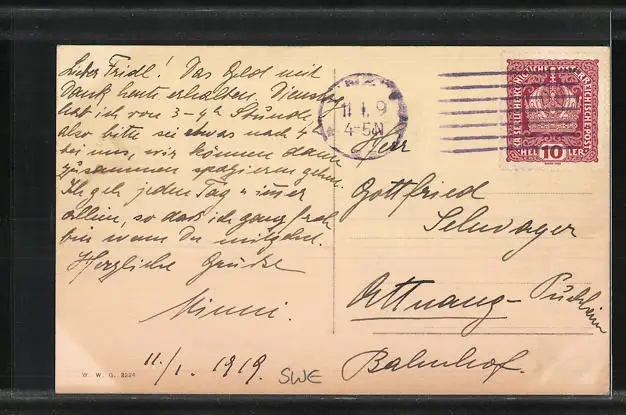 Lieber Fridl! Das Geld mit
Dank heute erhalten. Dienstag
hab ich von 3-4h Stunde,
also bitte sei etwas nach 4h
bei uns, wir können dann
zusammen spazieren gehn.
Ich geh jeden Tag immer
allein, so daß ich ganz froh
bin wenn Du mitgehst.
Herzliche Grüße
Minni.
11./1. 1919.
SWE
W. W. G. 2324
LINZ
11 I 9
4-5N
KAISERLICHE KÖNIGLICHE ÖSTERREICHISCHE POST
HELLER 10 HELLER
Herr
Gottfried
Schwager
Attnang-Puchheim
Bahnhof.